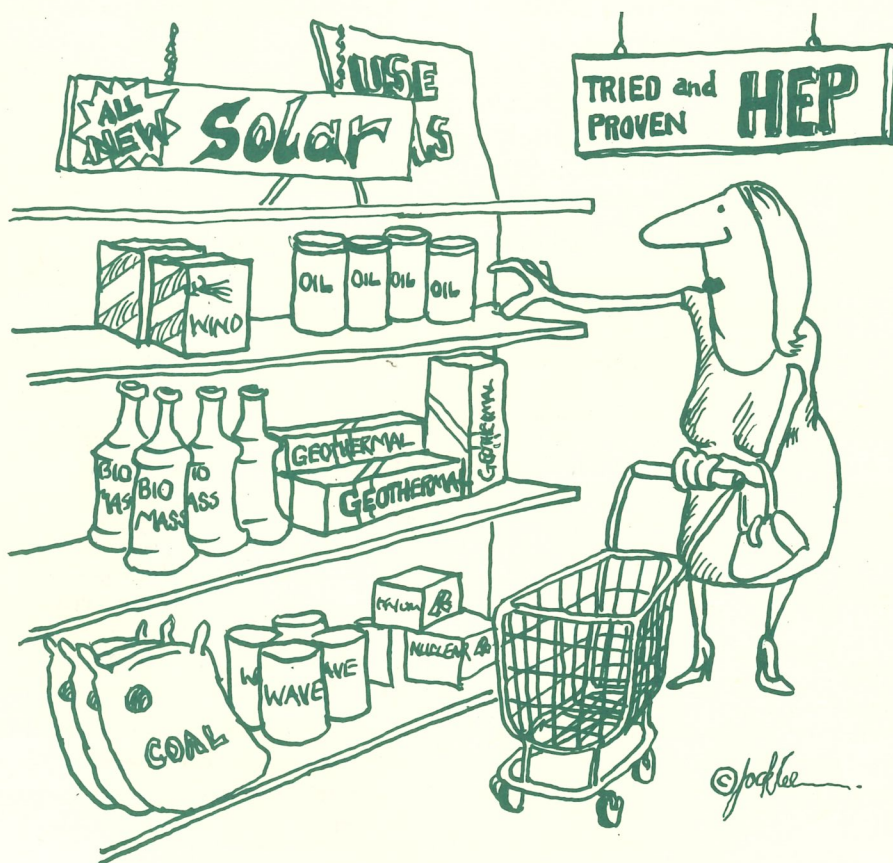 ALL
NEW
Solar
USE
AS
TRIED and
PROVEN
HEP
WIND
OIL
OIL
OIL
OIL
BIO
MASS
BIO
MASS
GEOTHERMAL
GEOTHERMAL
GEOTHERMAL
COAL
WAVE
AVE
NUCLEAR